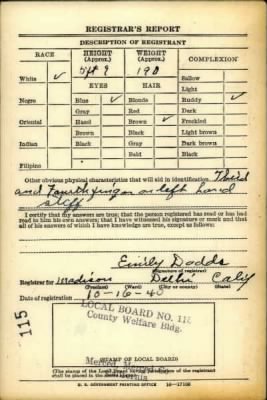 REGISTRAR'S REPORT
DESCRIPTION OF REGISTRANT
RACE HEIGHT (Approx.) WEIGHT (Approx.) COMPLEXION
White ✓ 5 ft 9 190 Sallow
EYES HAIR Light
Negro Blue ✓ Blonde Ruddy ✓
Gray Red Dark
Oriental Hazel Brown ✓ Freckled
Brown Black Light brown
Indian Black Gray Dark brown
Bald Black
Filipino
Other obvious physical characteristics that will aid in identification Third
and Fourth finger on left hand
stiff
I certify that my answers are true; that the person registered has read or has had
read to him his own answers; that I have witnessed his signature or mark and that
all of his answers of which I have knowledge are true, except as follows:
Emily Dodds
(Signature of registrar)
Registrar for Madison Delhi Calif
(Precinct) (Ward) (City or county) (State)
Date of registration 10-16-40
LOCAL BOARD NO. 113
County Welfare Bldg.
115
Merced, Merced
STAMP OF LOCAL BOARD
(The stamp of the Local Board having jurisdiction of the registrant
shall be placed in the above space.)
U. S. GOVERNMENT PRINTING OFFICE 16—17105